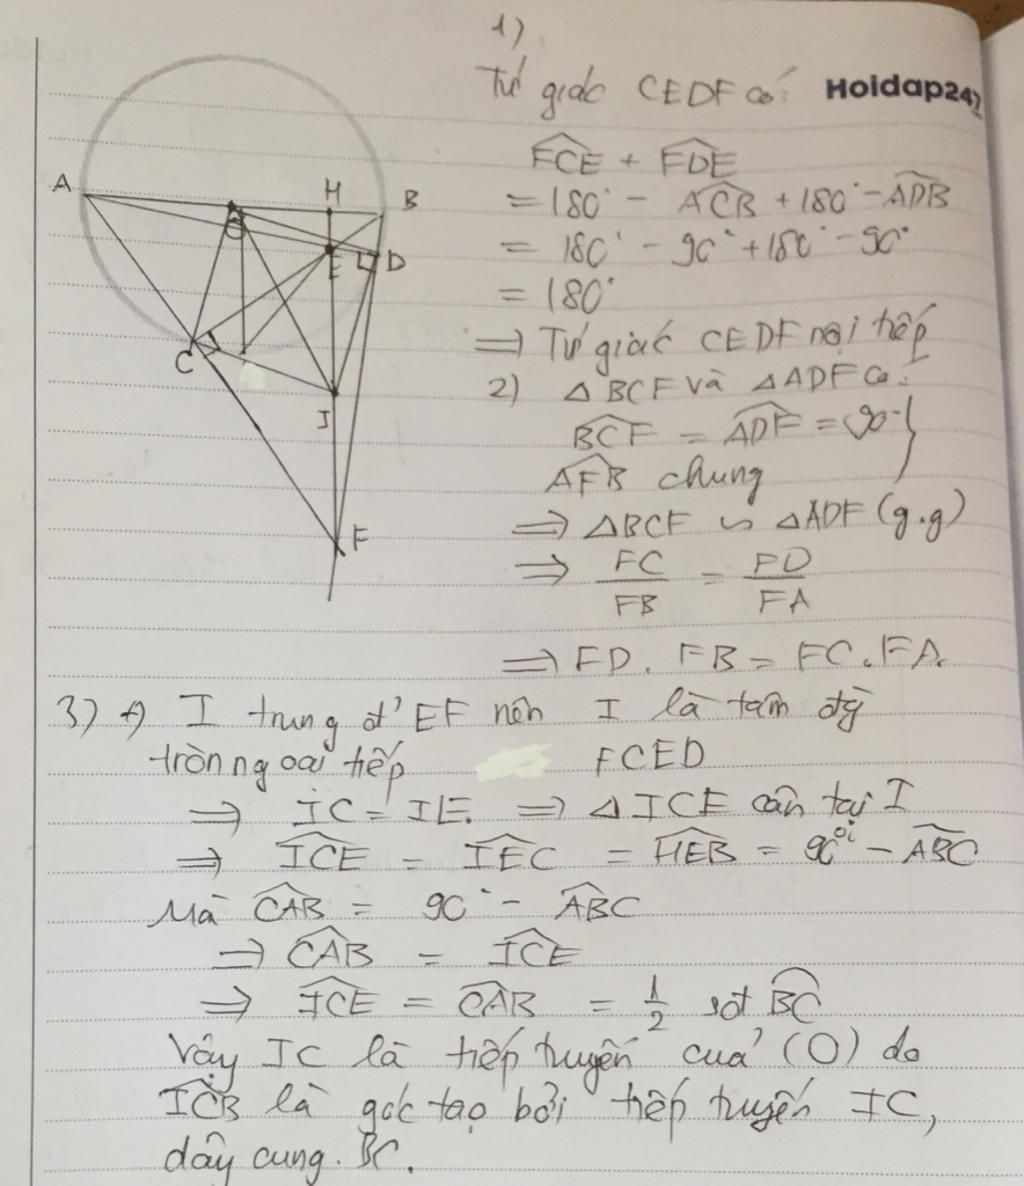 1)
Tứ giác CEDF có: Hoidap247
A
H
B
E
D
C
I
F
$\widehat{FCE} + \widehat{FDE}$
= 180° - $\widehat{ACB}$ + 180° - $\widehat{ADB}$
= 180° - 90° + 180° - 90°
= 180°
⇒ Tứ giác CEDF nội tiếp
2) △BCF và △ADF có:
$\widehat{BCF}$ = $\widehat{ADF}$ = 90° }
$\widehat{AFB}$ chung
⇒ △BCF ∽ △ADF (g.g)
⇒ $\frac{FC}{FB} = \frac{FD}{FA}$
⇒ FD. FB = FC. FA.
3) +) I trung đ' EF nên I là tâm đg
tròn ngoại tiếp FCED
⇒ IC = IE. ⇒ △ICE cân tại I
⇒ $\widehat{ICE}$ = $\widehat{IEC}$ = $\widehat{HEB}$ = 90° - $\widehat{ABC}$
Mà $\widehat{CAB}$ = 90° - $\widehat{ABC}$
⇒ $\widehat{CAB}$ = $\widehat{ICE}$
⇒ $\widehat{ICE}$ = $\widehat{CAB}$ = $\frac{1}{2}$ sđ $\overset{\frown}{BC}$
Vậy IC là tiếp tuyến của (O) do
$\widehat{ICB}$ là góc tạo bởi tiếp tuyến IC,
dây cung. BC.